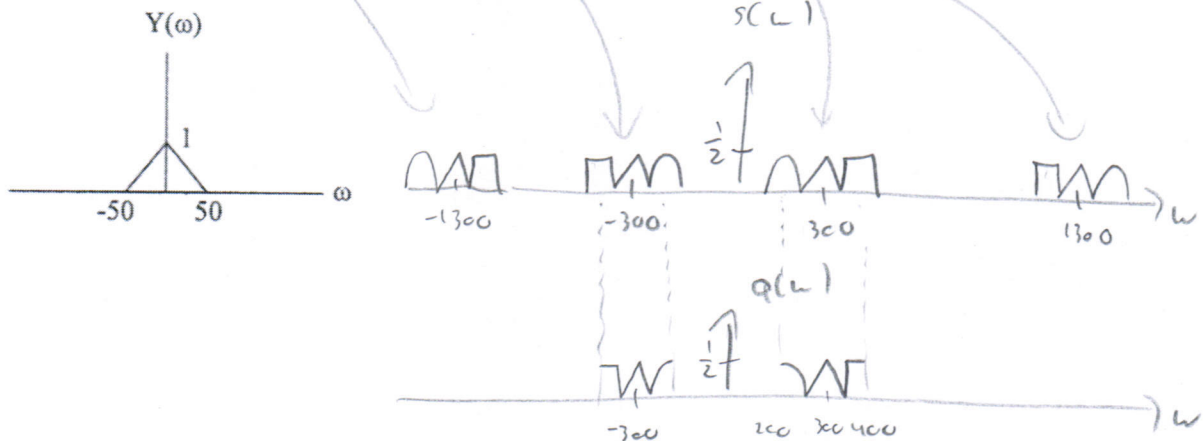 Y(ω)
1
-50
50
ω
S(ω)
1/2
-1300
-300
300
1300
ω
Q(ω)
1/2
-300
200
300
400
ω